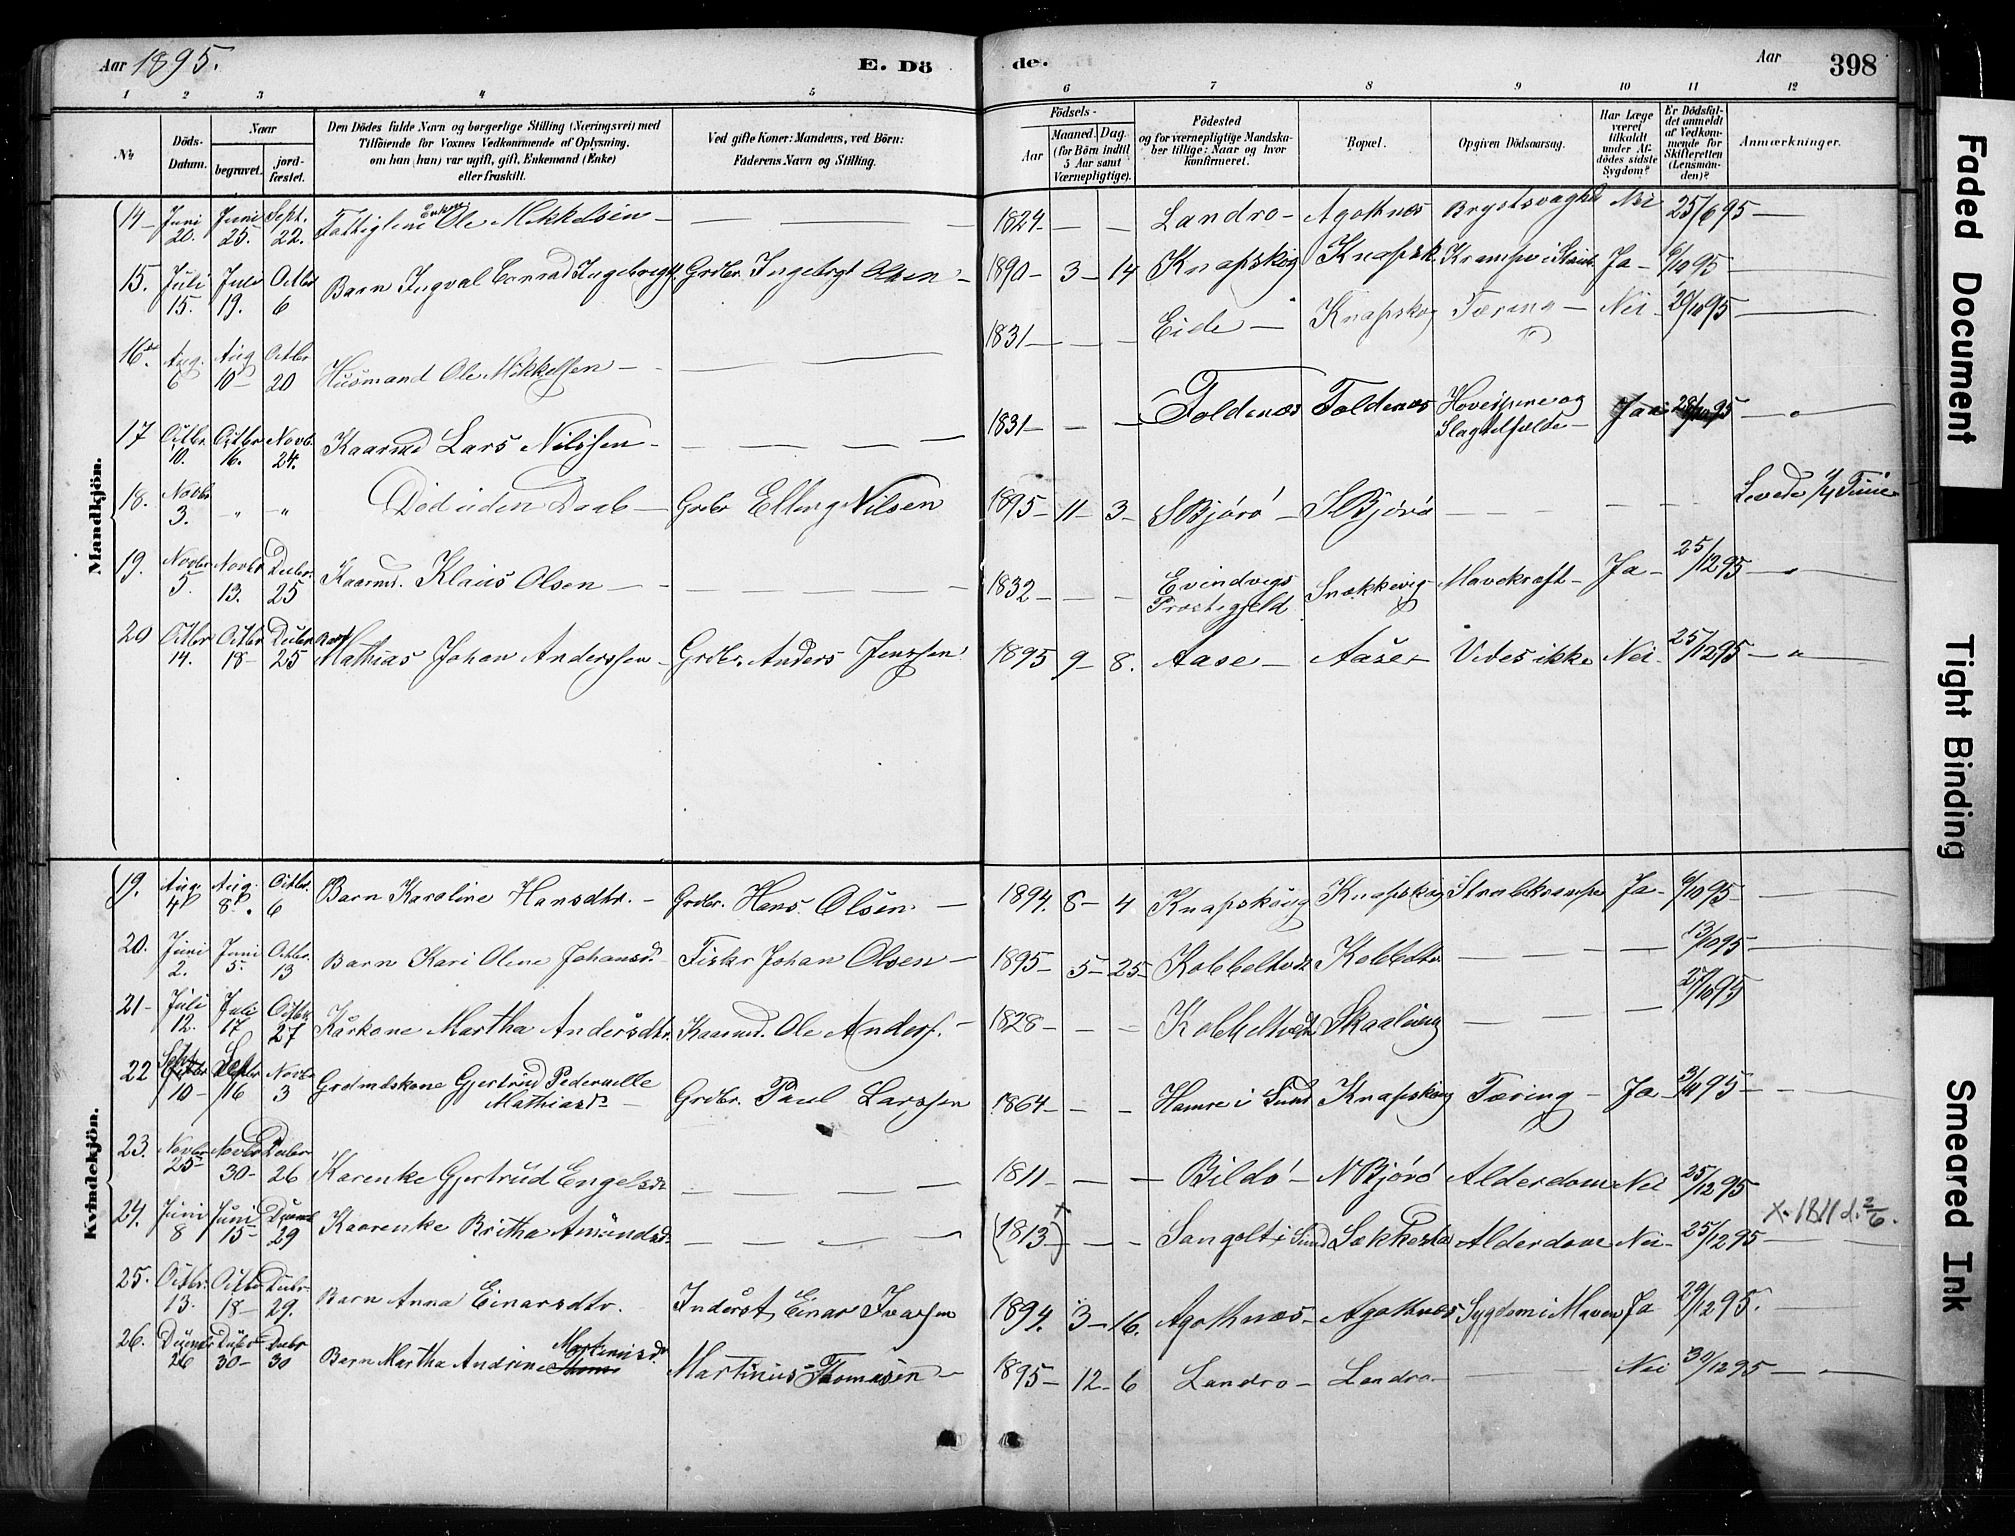 Aar 1895.
E. Dö
de.
Aar
398
1 2 3 4 5 6 7 8 9 10 11 12
Nr.
Döds-Datum.
Naar
begravet.
jordfæstet.
Den Dödes fulde Navn og borgerlige Stilling (Næringsvei) med
Tilföiende for Voxnes Vedkommende af Oplysning,
om han (hun) var ugift, gift, Enkemand (Enke)
eller fraskilt.
Ved gifte Koner: Mandens, ved Börn:
Faderens Navn og Stilling.
Födsels-
Aar
Maaned. Dag.
(for Börn indtil
5 Aar samt
Værnepligtige).
Födested
og for værnepligtige Mandskaber tillige: Naar og hvor
konfirmeret.
Bopæl.
Opgiven Dödsaarsag.
Har Læge
været
tilkaldt
under Afdödes sidste
Sygdom?
Er Dödsfaldet anmeldt
af Vedkommende for
Skifteretten
(Lensmanden)?
Anmærkninger.
Mandkjön.
14 Juni 20. Juni 25. Sept. 22. Fattiglem Enkem Ole Mikkelsen — 1824 — — Landro — Agotnes Brystsvaghd Nei 25/6 95 —
15. Juli 15. Juli 19. Octbr 6 Barn Ingval Conrad Ingebrigts. Grdbr. Ingebrgt Olsen — 1890 — 3 — 14 Knapskog Knapsk. Krampe i Ja — 6/10 95 —
16. Aug. 6 Aug 10 — Octbr 20 Husmand Ole Mikkelsen — 1831 — — Eide — Knapskog Tæring — Nei — 20/10 95 —
17 Octbr. 10. Octbr 16. Novb. 24. Kaarmd Lars Nilssen — 1831 — — Foldnæs Foldnæs Hovedpine og Slagtilfælde — Ja 28/10 95 — "
18. Novbr 3. " " Död uden Daab — Grdbr Elling Nilsen 1895 — 11 — 3 — S Bjorö — S Bjorö — — — Levede 1/4 Time
19. Novbr 5. Novbr 13. Decbr. 25 Kaarmd. Klaus Olsen — 1832 — — Evindvigs Præstegjeld Snekkevig Mavekræft — Ja — 25/12 95 — "
20 Octbr 14. Octbr 18 — Decbr 25 Barn Mathias Johan Anderssen — Grdbr. Anders Jenssen 1895 9 — 8. Aase — Aase — Vides ikke Nei — 25/12 95 — "
Kvindekjön.
19. Aug. 4 Aug. 8. Octbr. 6 Barn Karoline Hansdtr. — Grdbr. Hans Olsen — 1894. 8 — 4 Knapskog Knapskog Strubekrampe Ja — 6/10 95 —
20. Juni 2. Juni 5. Octbr. 13 Barn Kari Oline Johansd. Fisker Johan Olsen — 1895 — 5 — 25 — Kobbeltvedt Kobbeltv. — — 13/10 95 —
21 — Juli 12. Juli 17 Octbr 27 Kårkone Martha Andersdtr. Kaarmd. Ole Anders. — 1828 — — Kobbeltvedt Skaalvig — — 27/10 95
22 Sept 10 — Sept 16 Novbr 3 Grdmdskone Gjertrud Pedernille Mathiasd. — Grdbr. Paul Larssen 1864 — — Hamre i Sund Knapskog Tæring — Ja — 3/11 95 —
23. Novbr 25 Novbr 30 — Decbr 26 Karenke Gjertrud Engelsd. — 1811 — — Bildö N Bjorö Alderdom Nei 25/12 95
24. Juni 8 Juni 15 — Decmb 29 Kaarenke Britha Amundsd. — (1813) x — — Sangolt i Sund Lækkesta Alderdom Nei — 25/12 95 — x. 1811 d. 2/6.
25. Octbr. 13. Octbr 18 — Decbr. 29. Barn Anna Einarsdtr. Inderst Einar Ivarsen 1894. 3 — 16. Agotnæs — Agotnæs Sygdom i Maven Ja 29/12 95. —
26. Decmbr 26 Decbr 30 — Decbr 30 Barn Martha Andrine Martinusd. Martinus Thomasen — 1895 — 12 — 6 Landro — Landro — Nei 30/12 95 —
Faded Document
Tight Binding
Smeared Ink